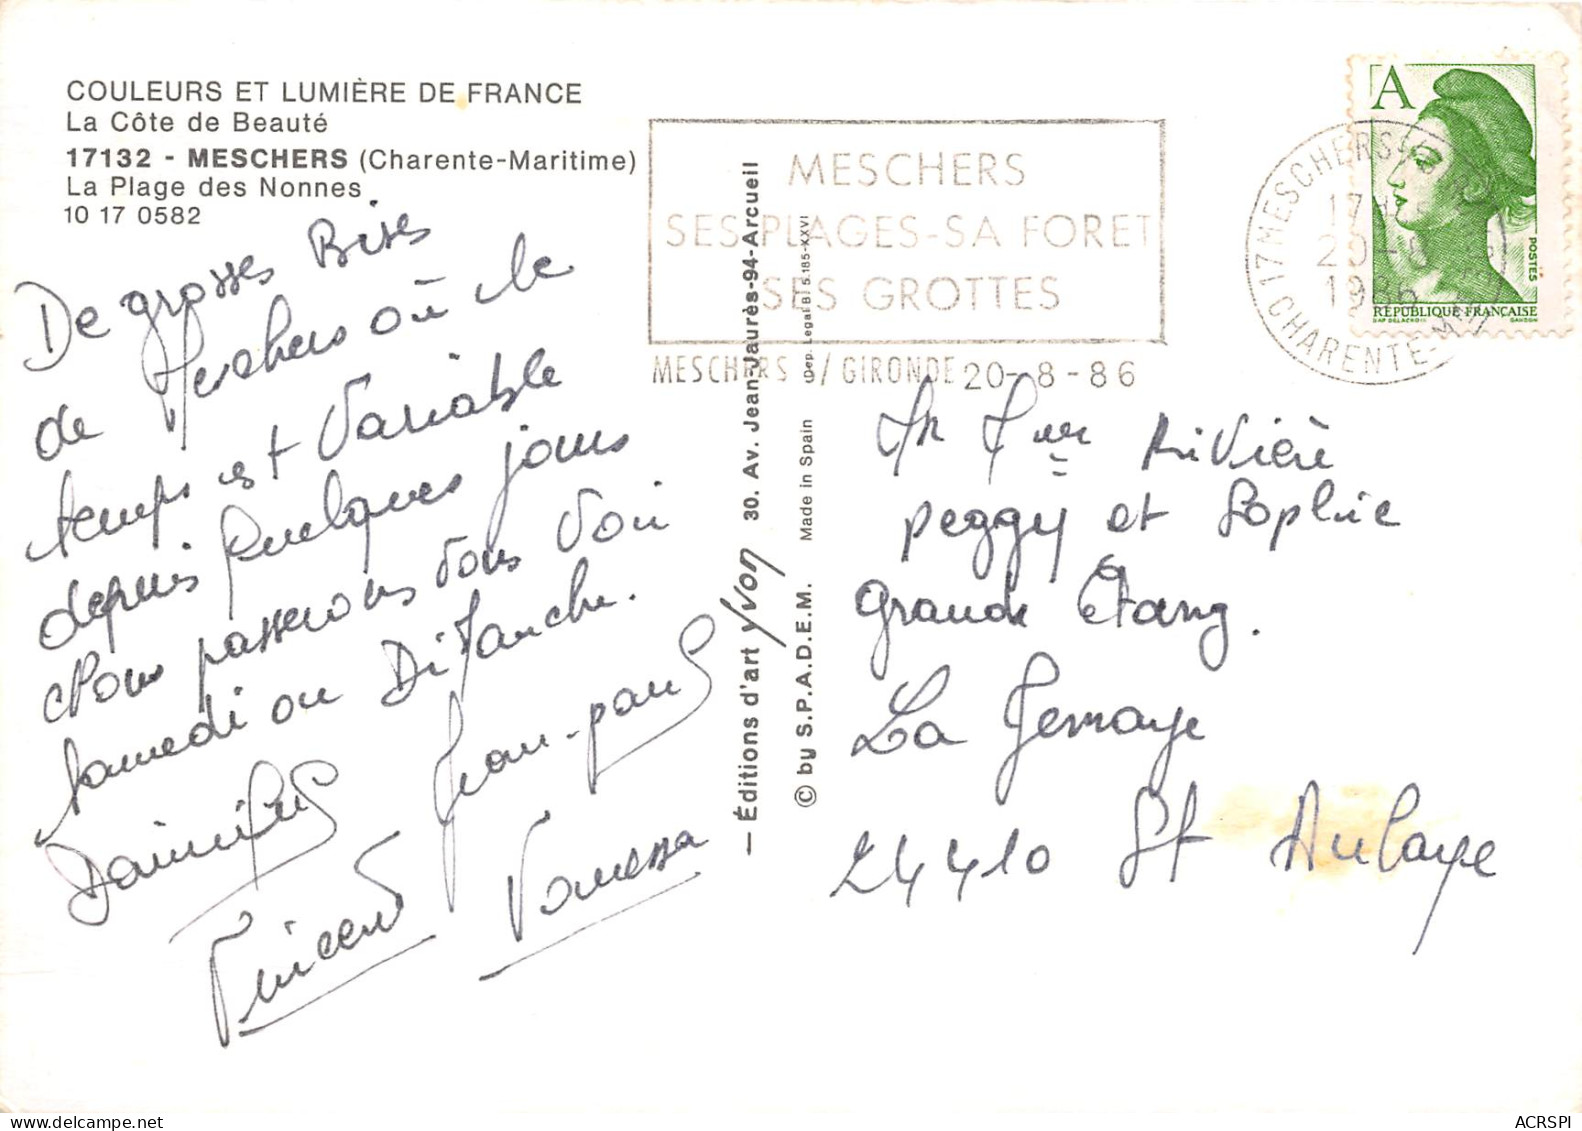 COULEURS ET LUMIÈRE DE FRANCE
La Côte de Beauté
17132 - MESCHERS (Charente-Maritime)
La Plage des Nonnes
10 17 0582
De grosses Bises
de Meschers où le
temps est Variable
depuis quelques jours
Nous passerons vous voir
Samedi ou Dimanche.
Jean-paul
Vincent Vanessa
— Éditions d'art Yvon 30. Av. Jean-Jaurès-94-Arcueil
© by S.P.A.D.E.M. Made in Spain Dep. Legal B. 5.185-XXVI
MESCHERS
SES PLAGES-SA FORET
SES GROTTES
MESCHERS S/ GIRONDE 20-8-86
A
POSTES
RÉPUBLIQUE FRANÇAISE
DAP DELACROIX GANDON
17 MESCHERS
17H
20-8
1986
CHARENTE-M
Rivière
peggy et Sophie
Grande Etang.
La Jemaye
24410 St Aulaye
ACRSPI